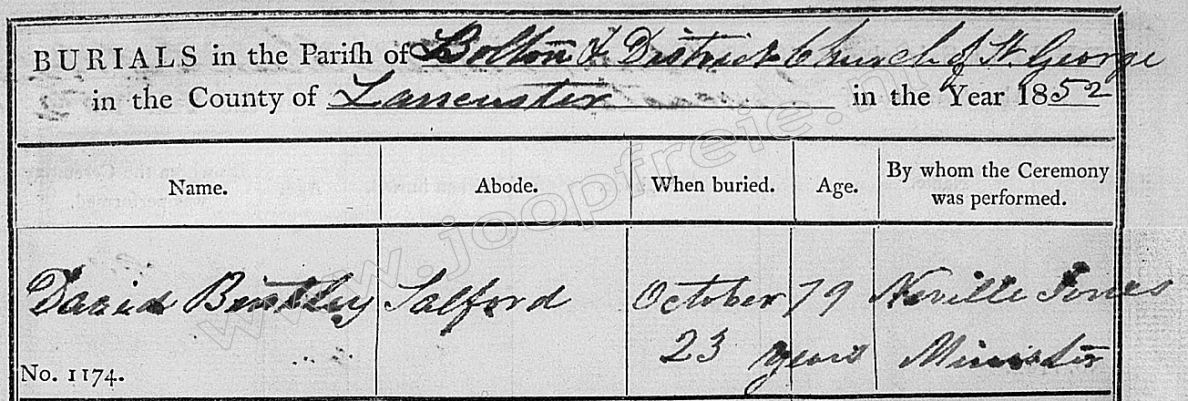 BURIALS in the Pariſh of Bolton & District Church of St. George
in the County of Lancaster in the Year 1852
Name. Abode. When buried. Age. By whom the Ceremony was performed.
David Bentley Salford October 79 Neville Jones
23 years Minister
No. 1174.
www.joopfreie.nl